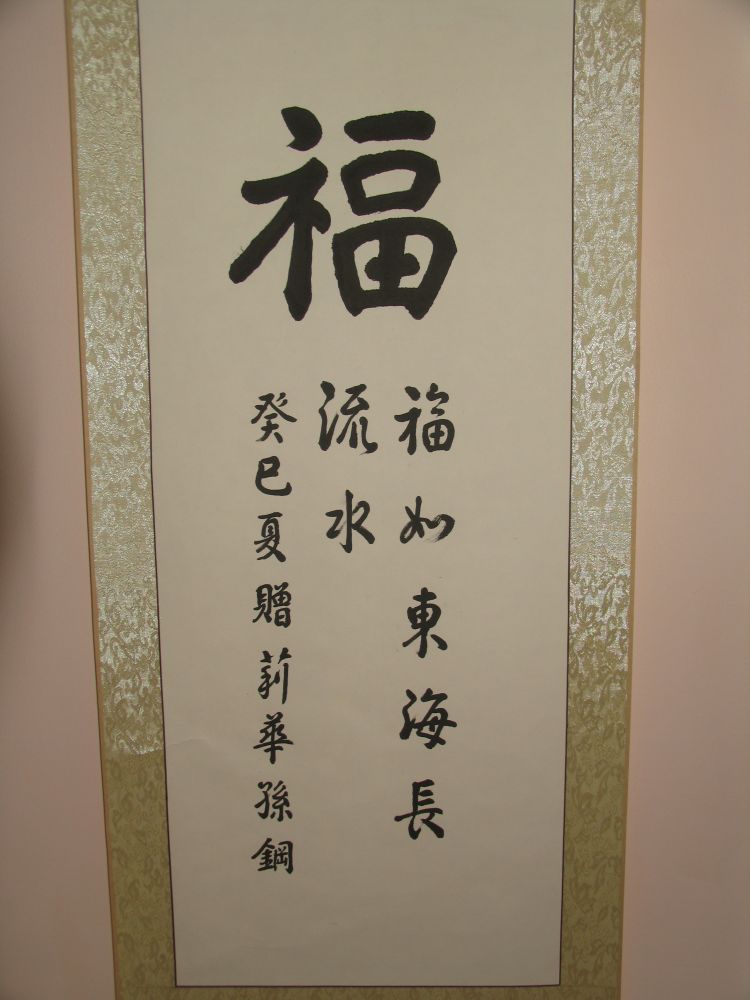 福
福如東海長
流水
癸巳夏贈莉華孫鋼